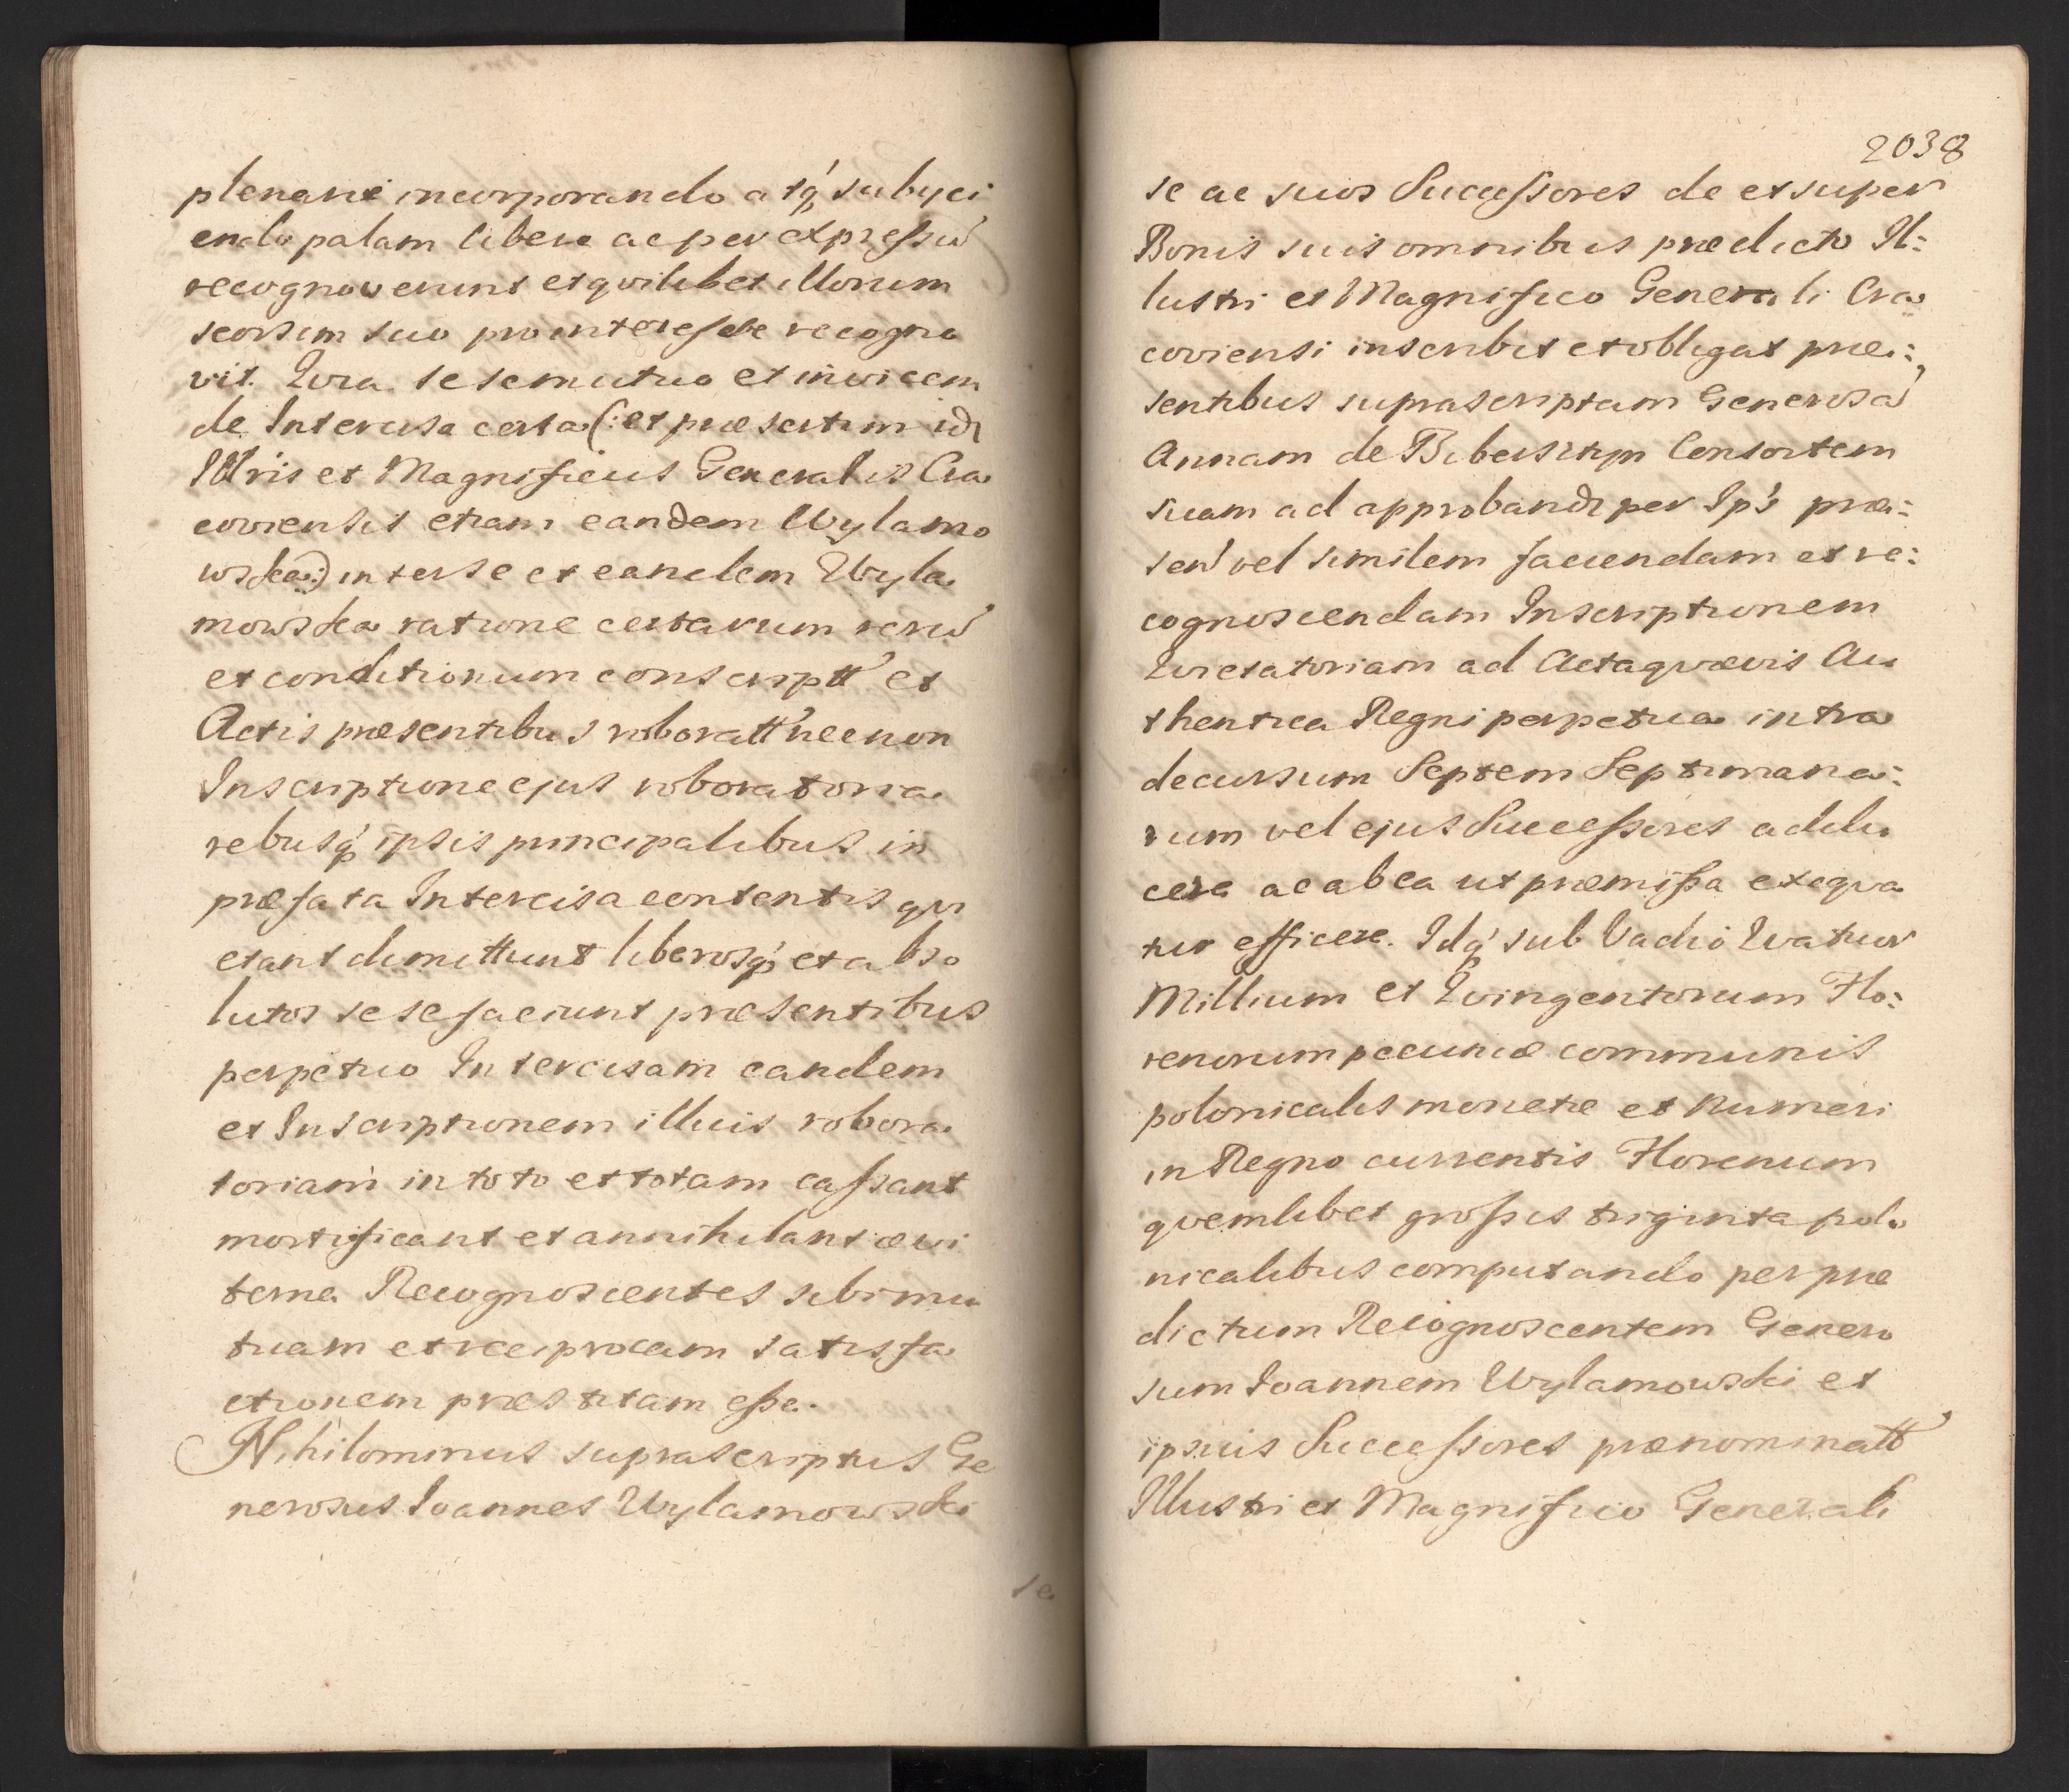 plenariè incorporando atq́ subyci
endo palam libere ac per expreſsũ
recognoverunt et qvilibet illorum
seorsim suo pro intereſse recogno
vit. Qvia sese mutuo et invicem
de Intercisa certa (: et præsertim idē
Illris et Magnificus Generalis Cra
coviensis etiam eandem Wylamo
wska:) inter se et eandem Wyla
mowska ratione certarum rerũ
et conditionum conscriptt' et
Actis præsentibus roboratt' necnon
Inscriptione ejus roboratoria
rebusq́ ipsis principalibus in
præfata Intercisa contentis qvi
etant dimittunt liberosq́ et abso
lutos sese faciunt præsentibus
perpetuo Intercisam eandem
et Inscriptionem illius robora
toriam in toto et totam caſsant
mortificant et annihilant ævi
terne Recognoscentes sibi mu
tuam et reciprocam satisfa
ctionem præstitam eſse.
Nihilominus suprascriptus Ge
nerosus Joannes Wylamowski
se
2038
se ac suos Succeſsores de et super
Bonis suis omnibus prædicto Il:
lustri et Magnifico Generali Cra
coviensi inscribit et obligat præ:
sentibus suprascriptam Generosã
Annam de Bibersztyn Consortem
suam ad approbandē per Ip's præ:
sen' vel similem faciendam et re:
cognoscendam Inscriptionem
Qvietatoriam ad Acta qvævis Au
thentica Regni perpetua intra
decursum Septem Septimana:
rum vel ejus Succeſsores addu
cere ac ab ea ut præmiſsa exeqva
tur efficere. Idq́ sub Vadio Qvatuor
Millium et Qvingentorum Flo:
renorum pecuniæ communis
polonicalis monetæ et numeri
in Regno currentis Florenum
qvemlibet groſsis triginta polo
nicalibus computando per præ
dictum Recognoscentem Genero
sum Joannem Wylamowski et
ipsius Succeſsores prænominatt'
Illustri et Magnifico Generali